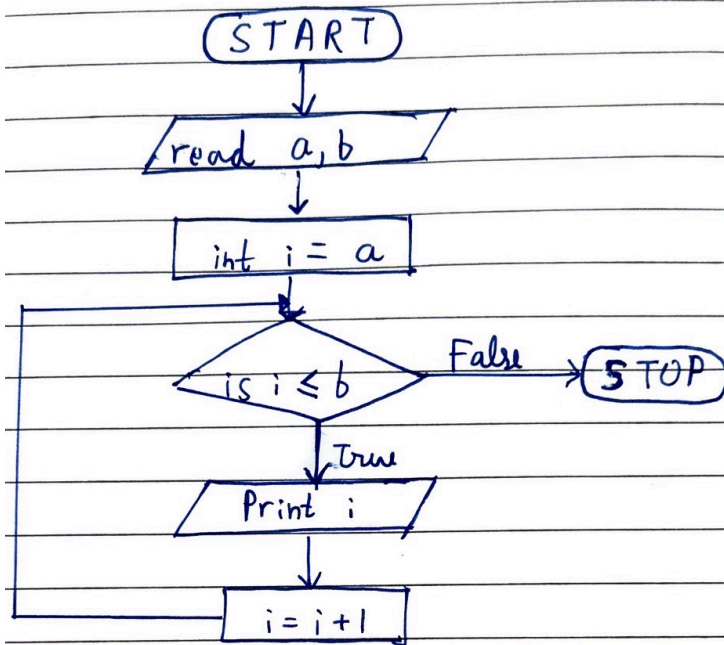 START
read a, b
int i = a
is i ≤ b
False
STOP
True
Print i
i = i + 1